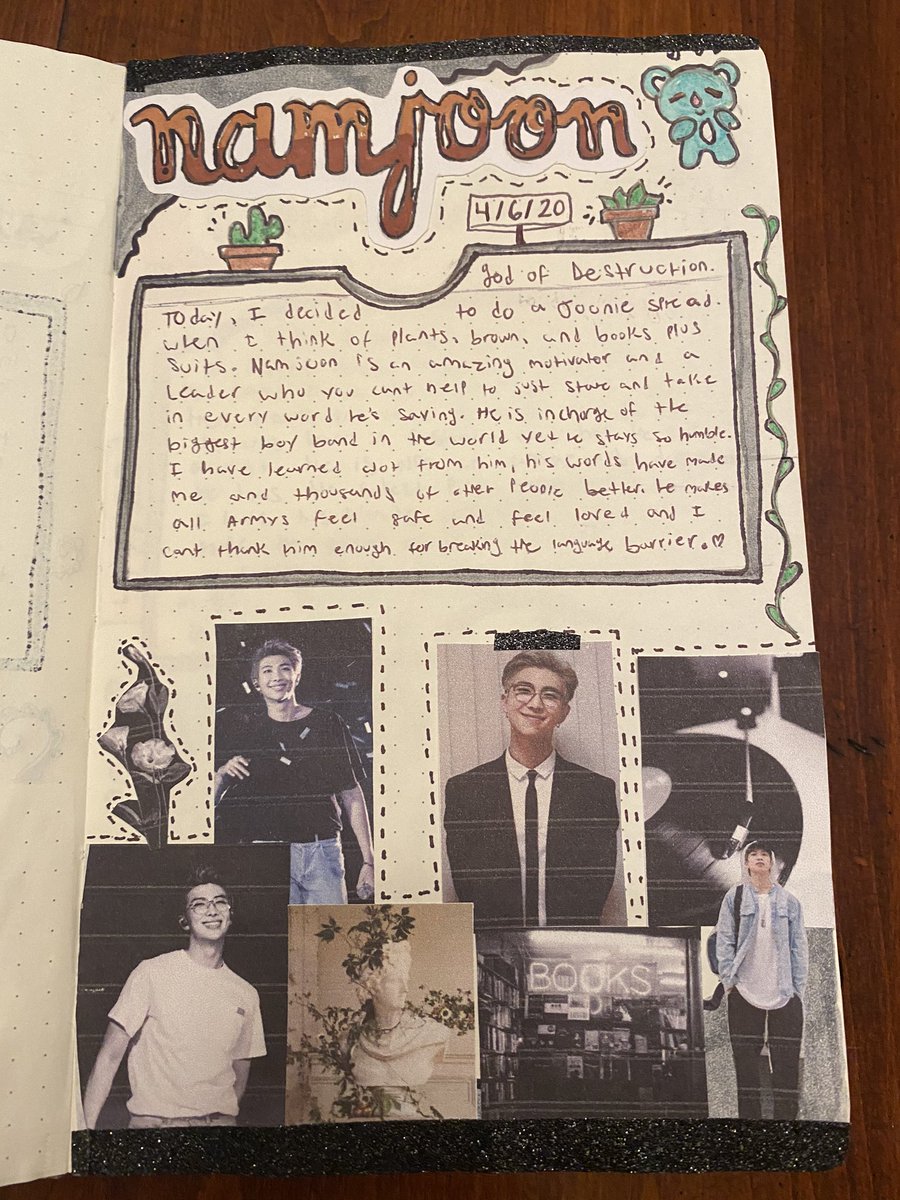 namjoon
4/6/20
god of Destruction.
Today, I decided to do a Joonie spread.
when I think of plants, brown, and books plus
suits. Namjoon is an amazing motivator and a
Leader who you cant help to just stare and take
in every word he's saying. He is incharge of the
biggest boy band in the world yet he stays so humble.
I have learned alot from him, his words have made
me and thousands of other people better. he makes
all Armys feel safe and feel loved and I
cant thank him enough for breaking the language barrier. ♡
BOOKS